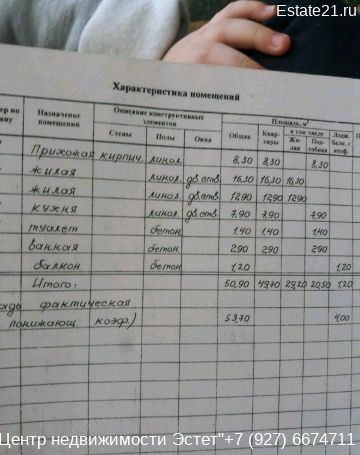 Estate21.ru
Характеристика помещений
Назначение помещений
Описание конструктивных элементов
Стены Полы Окна
Площадь, м²
Общая Квартиры в том числе Жилая Подсобная
Лодж. балк. с коэф.
Прихожая кирпич. линол. 8,30 8,30 8,30
жилая линол. дв.ств. 16,30 16,30 16,30
жилая линол. дв.ств. 12,90 12,90 12,90
кухня линол. дв.ств. 7,90 7,90 7,90
туалет бетон. 1,40 1,40 1,40
ванная бетон. 2,90 2,90 2,90
балкон бетон. 1,20 1,20
Итого: 50,90 49,70 29,20 20,50 1,20
фактическая
понижающ. коэф.) 53,70 4,00
Центр недвижимости Эстет"+7 (927) 6674711